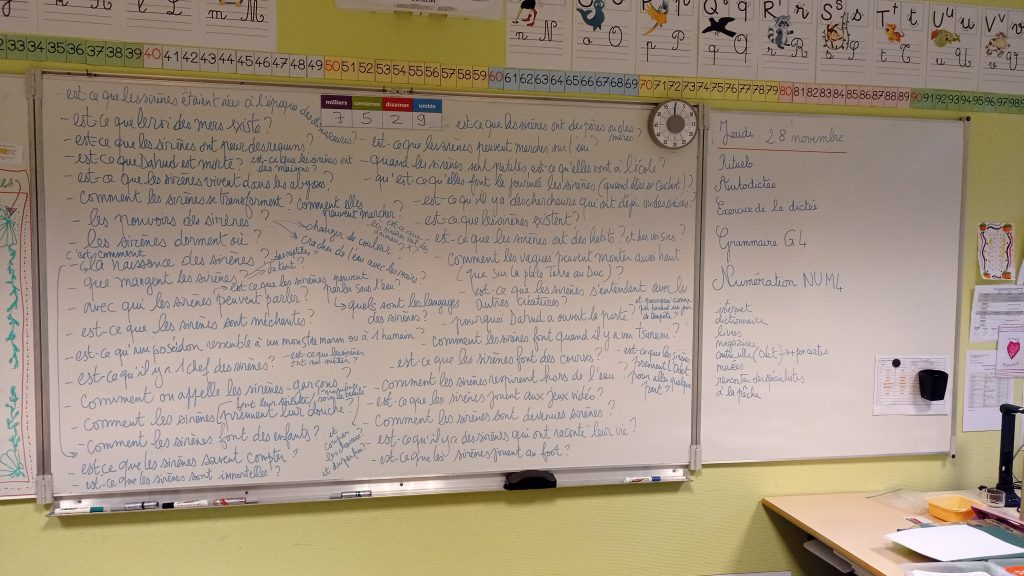 n N
o O
p P
q Q
r R
s S
t T
u U
v V
m M
32 33 34 35 36 37 38 39 40 41 42 43 44 45 46 47 48 49 50 51 52 53 54 55 56 57 58 59 60 61 62 63 64 65 66 67 68 69 70 71 72 73 74 75 76 77 78 79 80 81 82 83 84 85 86 87 88 89 90 91 92 93 94 95 96 97 98
milliers centaines dizaines unités
7 5 2 9
- est-ce que les sirènes étaient nées à l'époque des dinosaures?
- est-ce que le roi des mers existe?
- est-ce que les sirènes ont peur des requins?
- est-ce que Dahud est morte?
est-ce que les sirènes ont des maisons?
- est-ce que les sirènes vivent dans les abysses?
- comment les sirènes se transforment? comment elles peuvent marcher?
- les pouvoirs de sirènes
changer de couleur
cracher de l'eau avec les mains?
- les sirènes dorment où?
c'est comment
la naissance des sirènes?
- que mangent les sirènes?
- est-ce que les sirènes peuvent parler sous l'eau?
- avec qui les sirènes peuvent parler?
quels sont les langages des sirènes?
- est-ce que les sirènes sont méchantes?
- est-ce qu'un poséidon ressemble à un monstre marin ou à 1 humain?
- est-ce qu'il y a 1 chef des sirènes?
- est-ce que les sirènes ont un métier?
- Comment on appelle les sirènes-garçons?
- Comment les sirènes prennent leur douche?
font leur toilette
- Comment les sirènes font des enfants?
- est-ce que les sirènes savent compter?
- est-ce que les sirènes sont immortelles?
- est-ce que les sirènes ont des pères ou des mères?
- est-ce que les sirènes peuvent marcher sur l'eau?
- quand les sirènes sont petites, est-ce qu'elles vont à l'école?
- qu'est-ce qu'elles font la journée les sirènes (quand elles se cachent)?
- est-ce qu'il y a des chercheurs qui ont déjà vu des sirènes?
- est-ce que les sirènes existent?
- est-ce que les sirènes ont des habits? et des voisins?
- Comment les vagues peuvent monter aussi haut (que sur la plate Terre au Duc)?
- est-ce que les sirènes s'entendent avec les autres créatures?
- pourquoi Dahud a ouvert la porte?
- comment les sirènes font quand il y a un Tsunami?
- est-ce que les sirènes font des courses?
- est-ce que les sirènes prennent l'objet pour aller quelque part?
- comment les sirènes respirent hors de l'eau?
- est-ce que les sirènes jouent aux jeux vidéo?
- Comment les sirènes sont devenues sirènes?
- est-ce qu'il y a des sirènes qui ont raconté leur vie?
- est-ce que les sirènes jouent au foot?
Jeudi 28 novembre
Rituels
Autodictée
Exercice de la dictée
Grammaire G4
Numération NUM4
internet
dictionnaire
livres
magazines
musées
rencontre des spécialistes
à la pêche